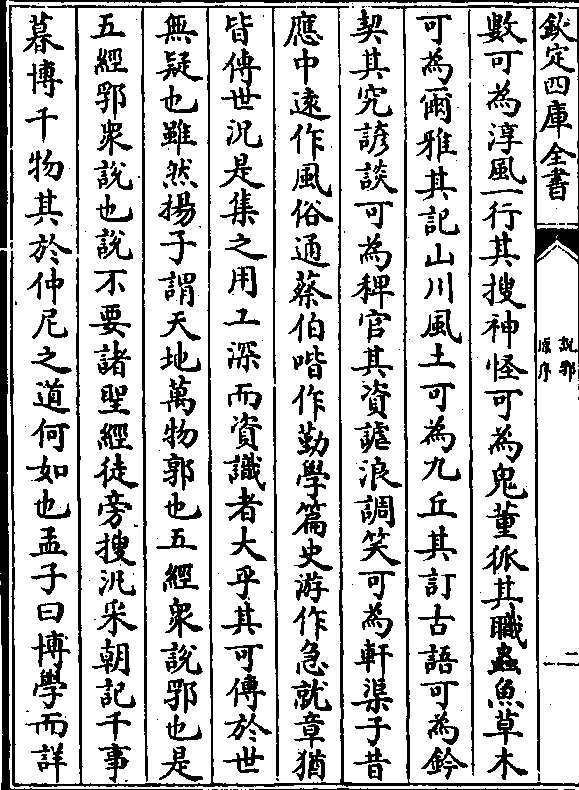 欽定四庫全書
說郛
原序
二
數可為淳風一行其搜神怪可為鬼董狐其職蟲魚草木
可為爾雅其記山川風土可為九丘其訂古語可為鈐
契其究諺談可為稗官其資謔浪調笑可為軒渠子昔
應中遠作風俗通蔡伯喈作勤學篇史游作急就章猶
皆傳世況是集之用工深而資識者大乎其可傳於世
無疑也雖然揚子謂天地萬物郭也五經衆說郛也是
五經郛衆說也說不要諸聖經徒旁搜汎采朝記千事
暮博千物其於仲尼之道何如也孟子曰博學而詳